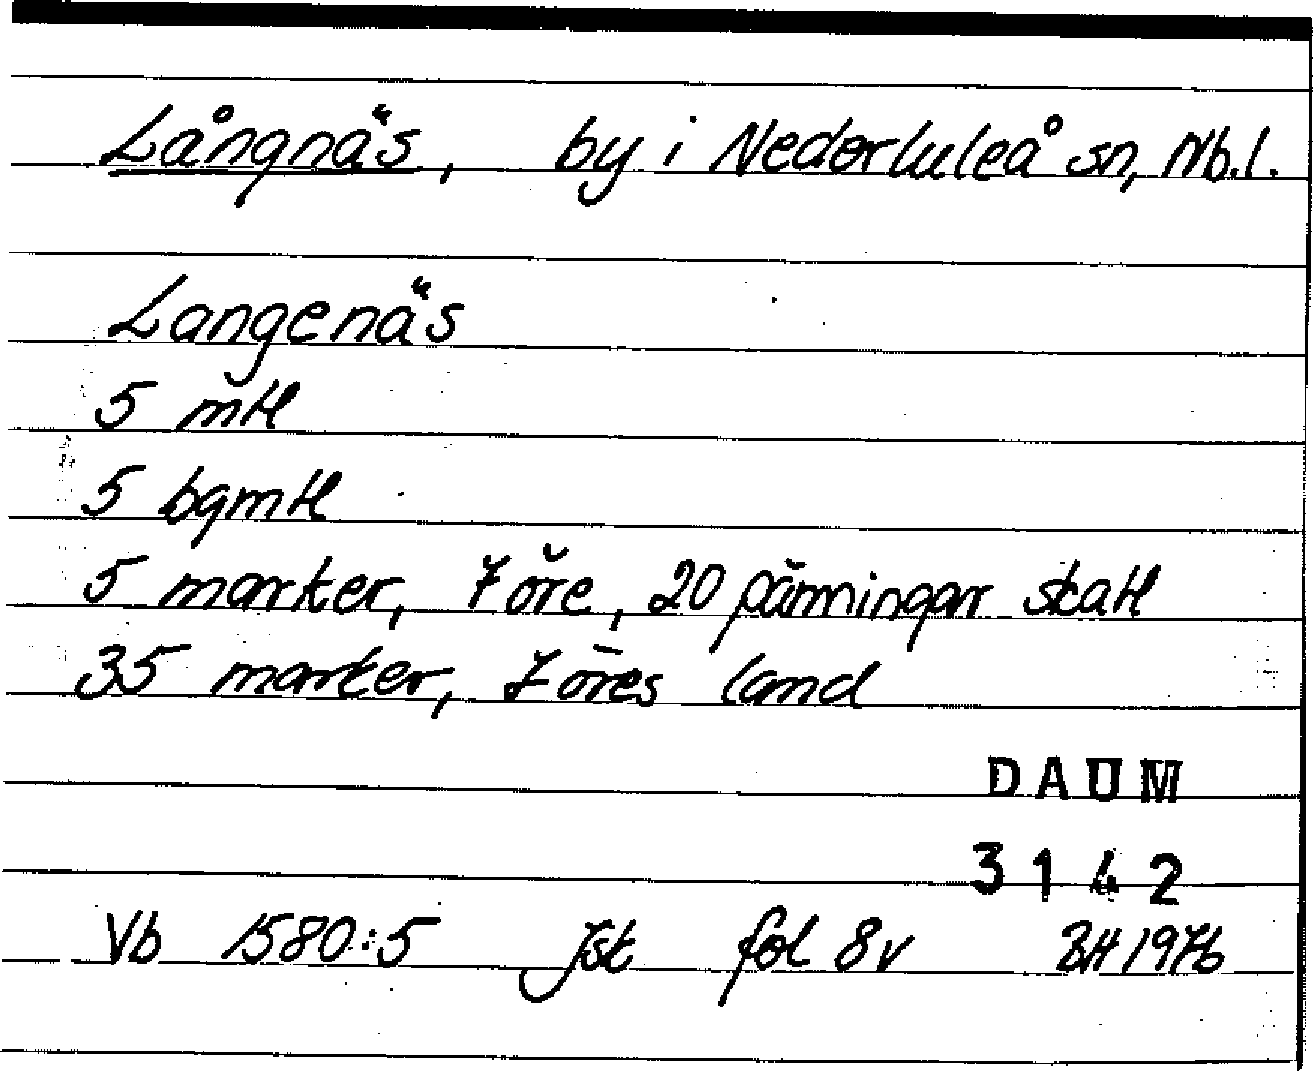 Långnäs, by i Nederluleå sn, Nb.l.
Langenäs
5 mtl
5 bgmtl
5 marker, 7 öre, 20 pänningar skatt
35 marker, 7 öres land
DAUM
3142
Vb 1580:5 Jst fol 8v BH 1976